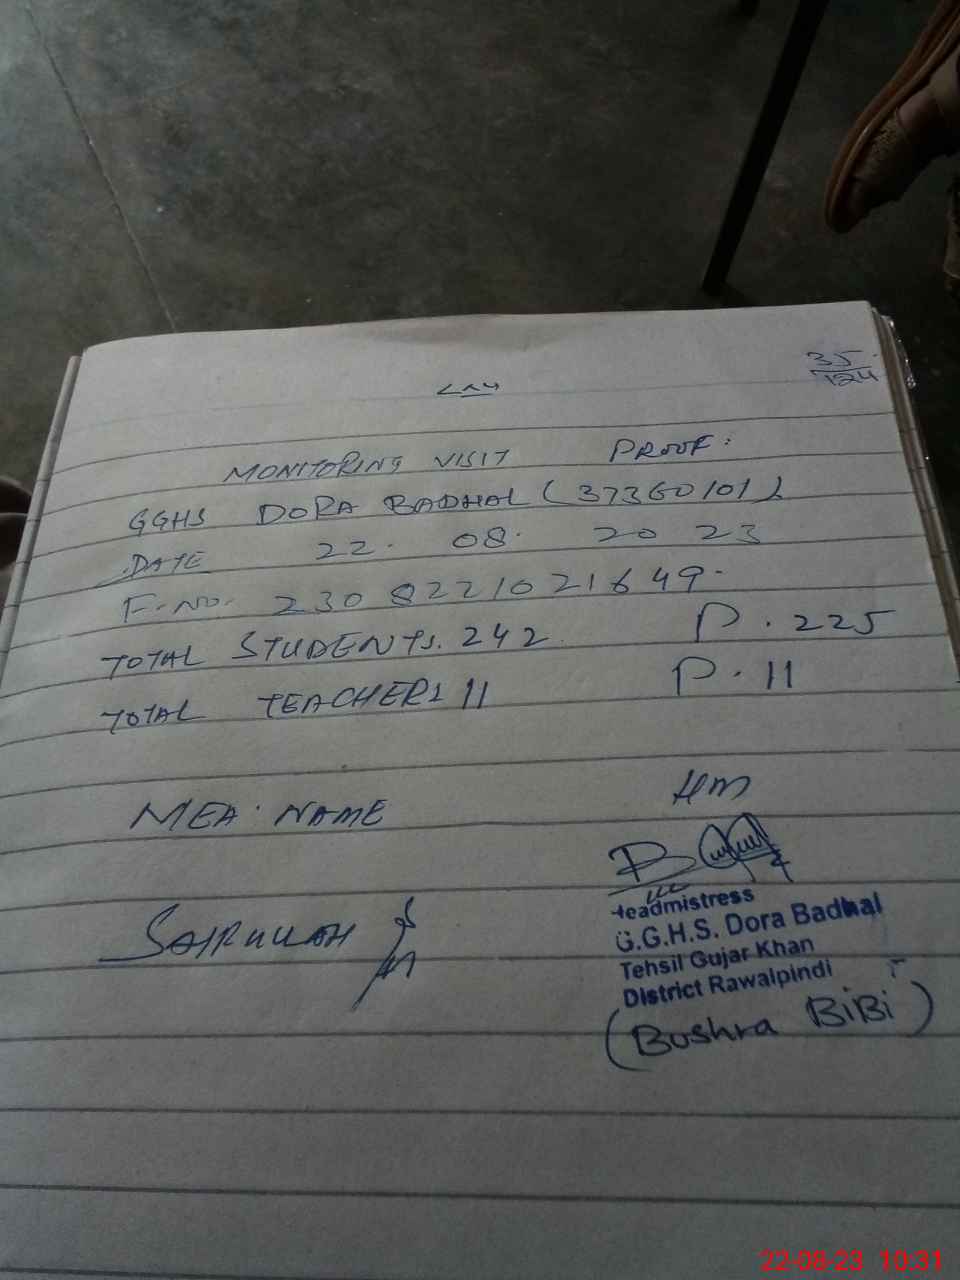 35
724
MONITORING VISIT PROOF:
GGHS DORA BADHAL (37360101)
DATE 22. 08. 2023
F.NO. 2308221021649.
TOTAL STUDENTS. 242 P. 225
TOTAL TEACHERS 11 P. 11
MEA. NAME HM
Headmistress
G.G.H.S. Dora Badhal
Tehsil Gujar Khan
District Rawalpindi
(Bushra BiBi)
22-08-23 10:31